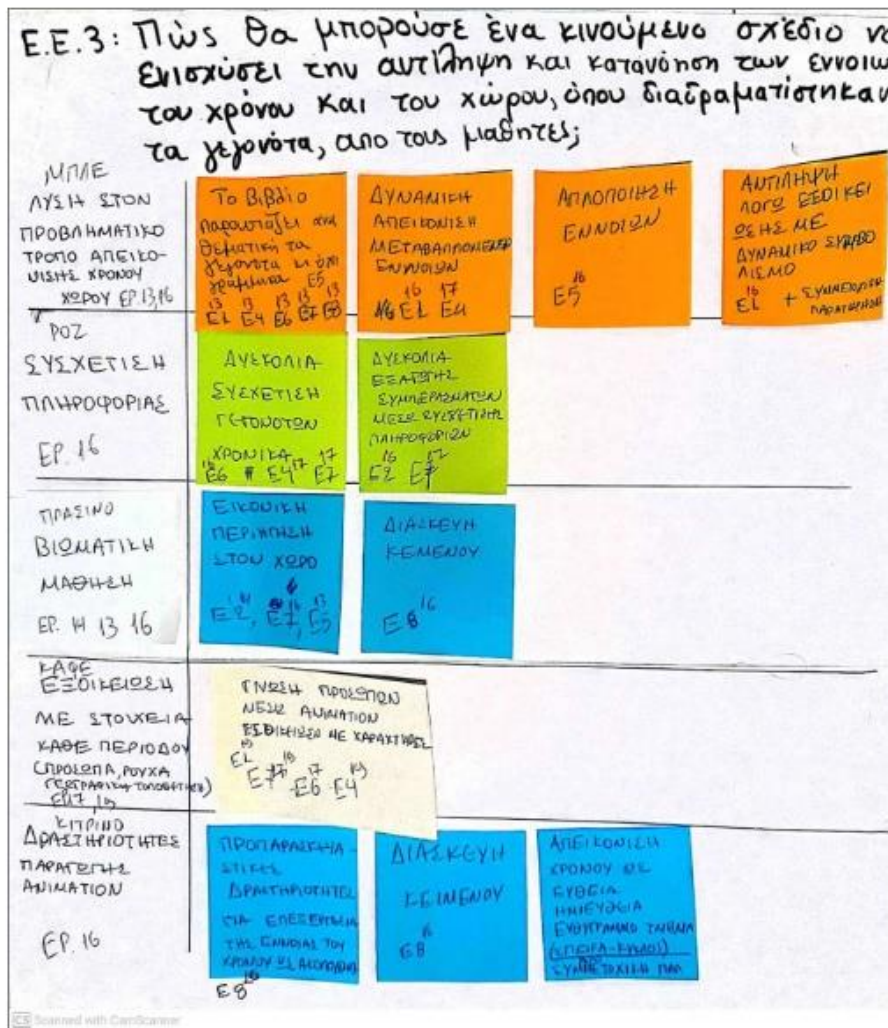 Ε.Ε.3: Πὼς θα μπορούσε ένα κινούμενο σχέδιο να
ενισχύσει την αντίληψη και κατανόηση των εννοιών
του χρόνου και του χώρου, όπου διαδραματίστηκαν
τα γεγονότα, απο τους μαθητές;
ΜΠΛΕ
ΛΥΣΗ ΣΤΟΝ
ΠΡΟΒΛΗΜΑΤΙΚΟ
ΤΡΟΠΟ ΑΠΕΙΚΟ-
ΝΙΣΗΣ ΧΡΟΝΟΥ
ΧΩΡΟΥ ΕΡ.13,16
Το βιβλίο
παρουσιάζει ανα
θεματική τα
γεγονότα κι όχι
γραμμικα Ε5
13 13 13 13 13
Ε1 Ε4 Ε6 Ε7 Ε8
ΔΥΝΑΜΙΚΗ
ΑΠΕΙΚΟΝΙΣΗ
ΜΕΤΑΒΑΛΛΟΜΕΝΩΝ
ΕΝΝΟΙΩΝ
16 17
Ε1 Ε4
ΑΠΛΟΠΟΙΗΣΗ
ΕΝΝΟΙΩΝ
16
Ε5
ΑΝΤΙΛΗΨΗ
ΛΟΓΩ ΕΞΟΙΚΕΙ
ΩΣΗΣ ΜΕ
ΔΥΝΑΜΙΚΟ ΣΥΜΒΟ
ΛΙΣΜΟ
16
Ε1 +
ΡΟΖ
ΣΥΣΧΕΤΙΣΗ
ΠΛΗΡΟΦΟΡΙΑΣ
ΕΡ. 16
ΔΥΣΚΟΛΙΑ
ΣΥΣΧΕΤΙΣΗ
ΓΕΓΟΝΟΤΩΝ
ΧΡΟΝΙΚΑ
16 17 17
Ε6 Ε4 Ε7
ΔΥΣΚΟΛΙΑ
ΕΞΑΓΩΓΗΣ
ΣΥΜΠΕΡΑΣΜΑΤΩΝ
ΜΕΣΩ ΣΥΣΧΕΤΙΣΗΣ
ΠΛΗΡΟΦΟΡΙΩΝ
16 17
Ε2 Ε7
ΠΡΑΣΙΝΟ
ΒΙΩΜΑΤΙΚΗ
ΜΑΘΗΣΗ
ΕΡ. 14 13 16
ΕΙΚΟΝΙΚΗ
ΠΕΡΙΗΓΗΣΗ
ΣΤΟΝ ΧΩΡΟ
Ε2, Ε7, Ε5
ΔΙΑΣΚΕΥΗ
ΚΕΜΕΝΟΥ
Ε8 16
ΚΑΦΕ
ΕΞΟΙΚΕΙΩΣΗ
ΜΕ ΣΤΟΙΧΕΙΑ
ΚΑΘΕ ΠΕΡΙΟΔΟΥ
(ΠΡΟΣΩΠΑ, ΡΟΥΧΑ
ΓΕΩΓΡΑΦΙΚΗ ΤΟΠΟΘΕΤΗΣΗ)
ΓΝΩΣΗ ΠΡΟΣΩΠΩΝ
ΜΕΣΩ ANIMATION
ΕΞΟΙΚΕΙΩΣΗ ΜΕ ΧΑΡΑΚΤΗΡΕΣ
Ε7 Ε6 Ε4
ΚΙΤΡΙΝΟ
ΔΡΑΣΤΗΡΙΟΤΗΤΕΣ
ΠΑΡΑΓΩΓΗΣ
ANIMATION
ΕΡ. 16
ΠΡΟΠΑΡΑΣΚΕΥΑ-
ΣΤΙΚΕΣ
ΔΡΑΣΤΗΡΙΟΤΗΤΕΣ
ΓΙΑ ΕΠΕΞΕΡΓΑΣΙΑ
ΤΗΣ ΕΝΝΟΙΑΣ ΤΟΥ
ΧΡΟΝΟΥ ΩΣ
Ε8 16
ΔΙΑΣΚΕΥΗ
ΚΕΙΜΕΝΟΥ
16
Ε8
ΑΠΕΙΚΟΝΙΣΗ
ΧΡΟΝΟΥ ΩΣ
ΕΥΘΕΙΑ
ΗΜΙΕΥΘΕΙΑ
ΕΥΘΥΓΡΑΜΜΟ ΤΜΗΜΑ
(ΣΠΕΙΡΑ-ΚΥΚΛΟΣ)
CS Scanned with CamScanner